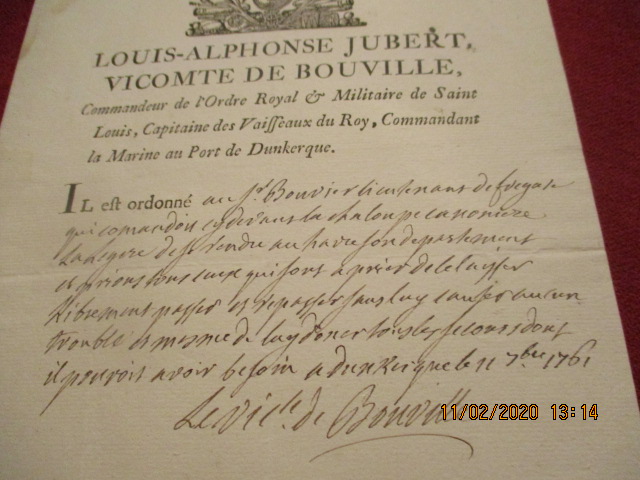 LOUIS-ALPHONSE JUBERT,
VICOMTE DE BOUVILLE,
Commandeur de l'Ordre Royal & Militaire de Saint
Louis, Capitaine des Vaisseaux du Roy, Commandant
la Marine au Port de Dunkerque.
IL est ordonné au Sr. Bouvier lieutenant de fregate
qui comandoit cy devant la chaloupe canoniere
de se rendre au havre son departement
et prions tous ceux qui sont a prier de le laisser
librement passer et repasser sans luy causer aucun
trouble et mesme de luy doner tous les secours dont
il pouroit avoir besoin a dunkerque le 11 7bre 1761
Le Victe. de Bouville
11/02/2020 13:14